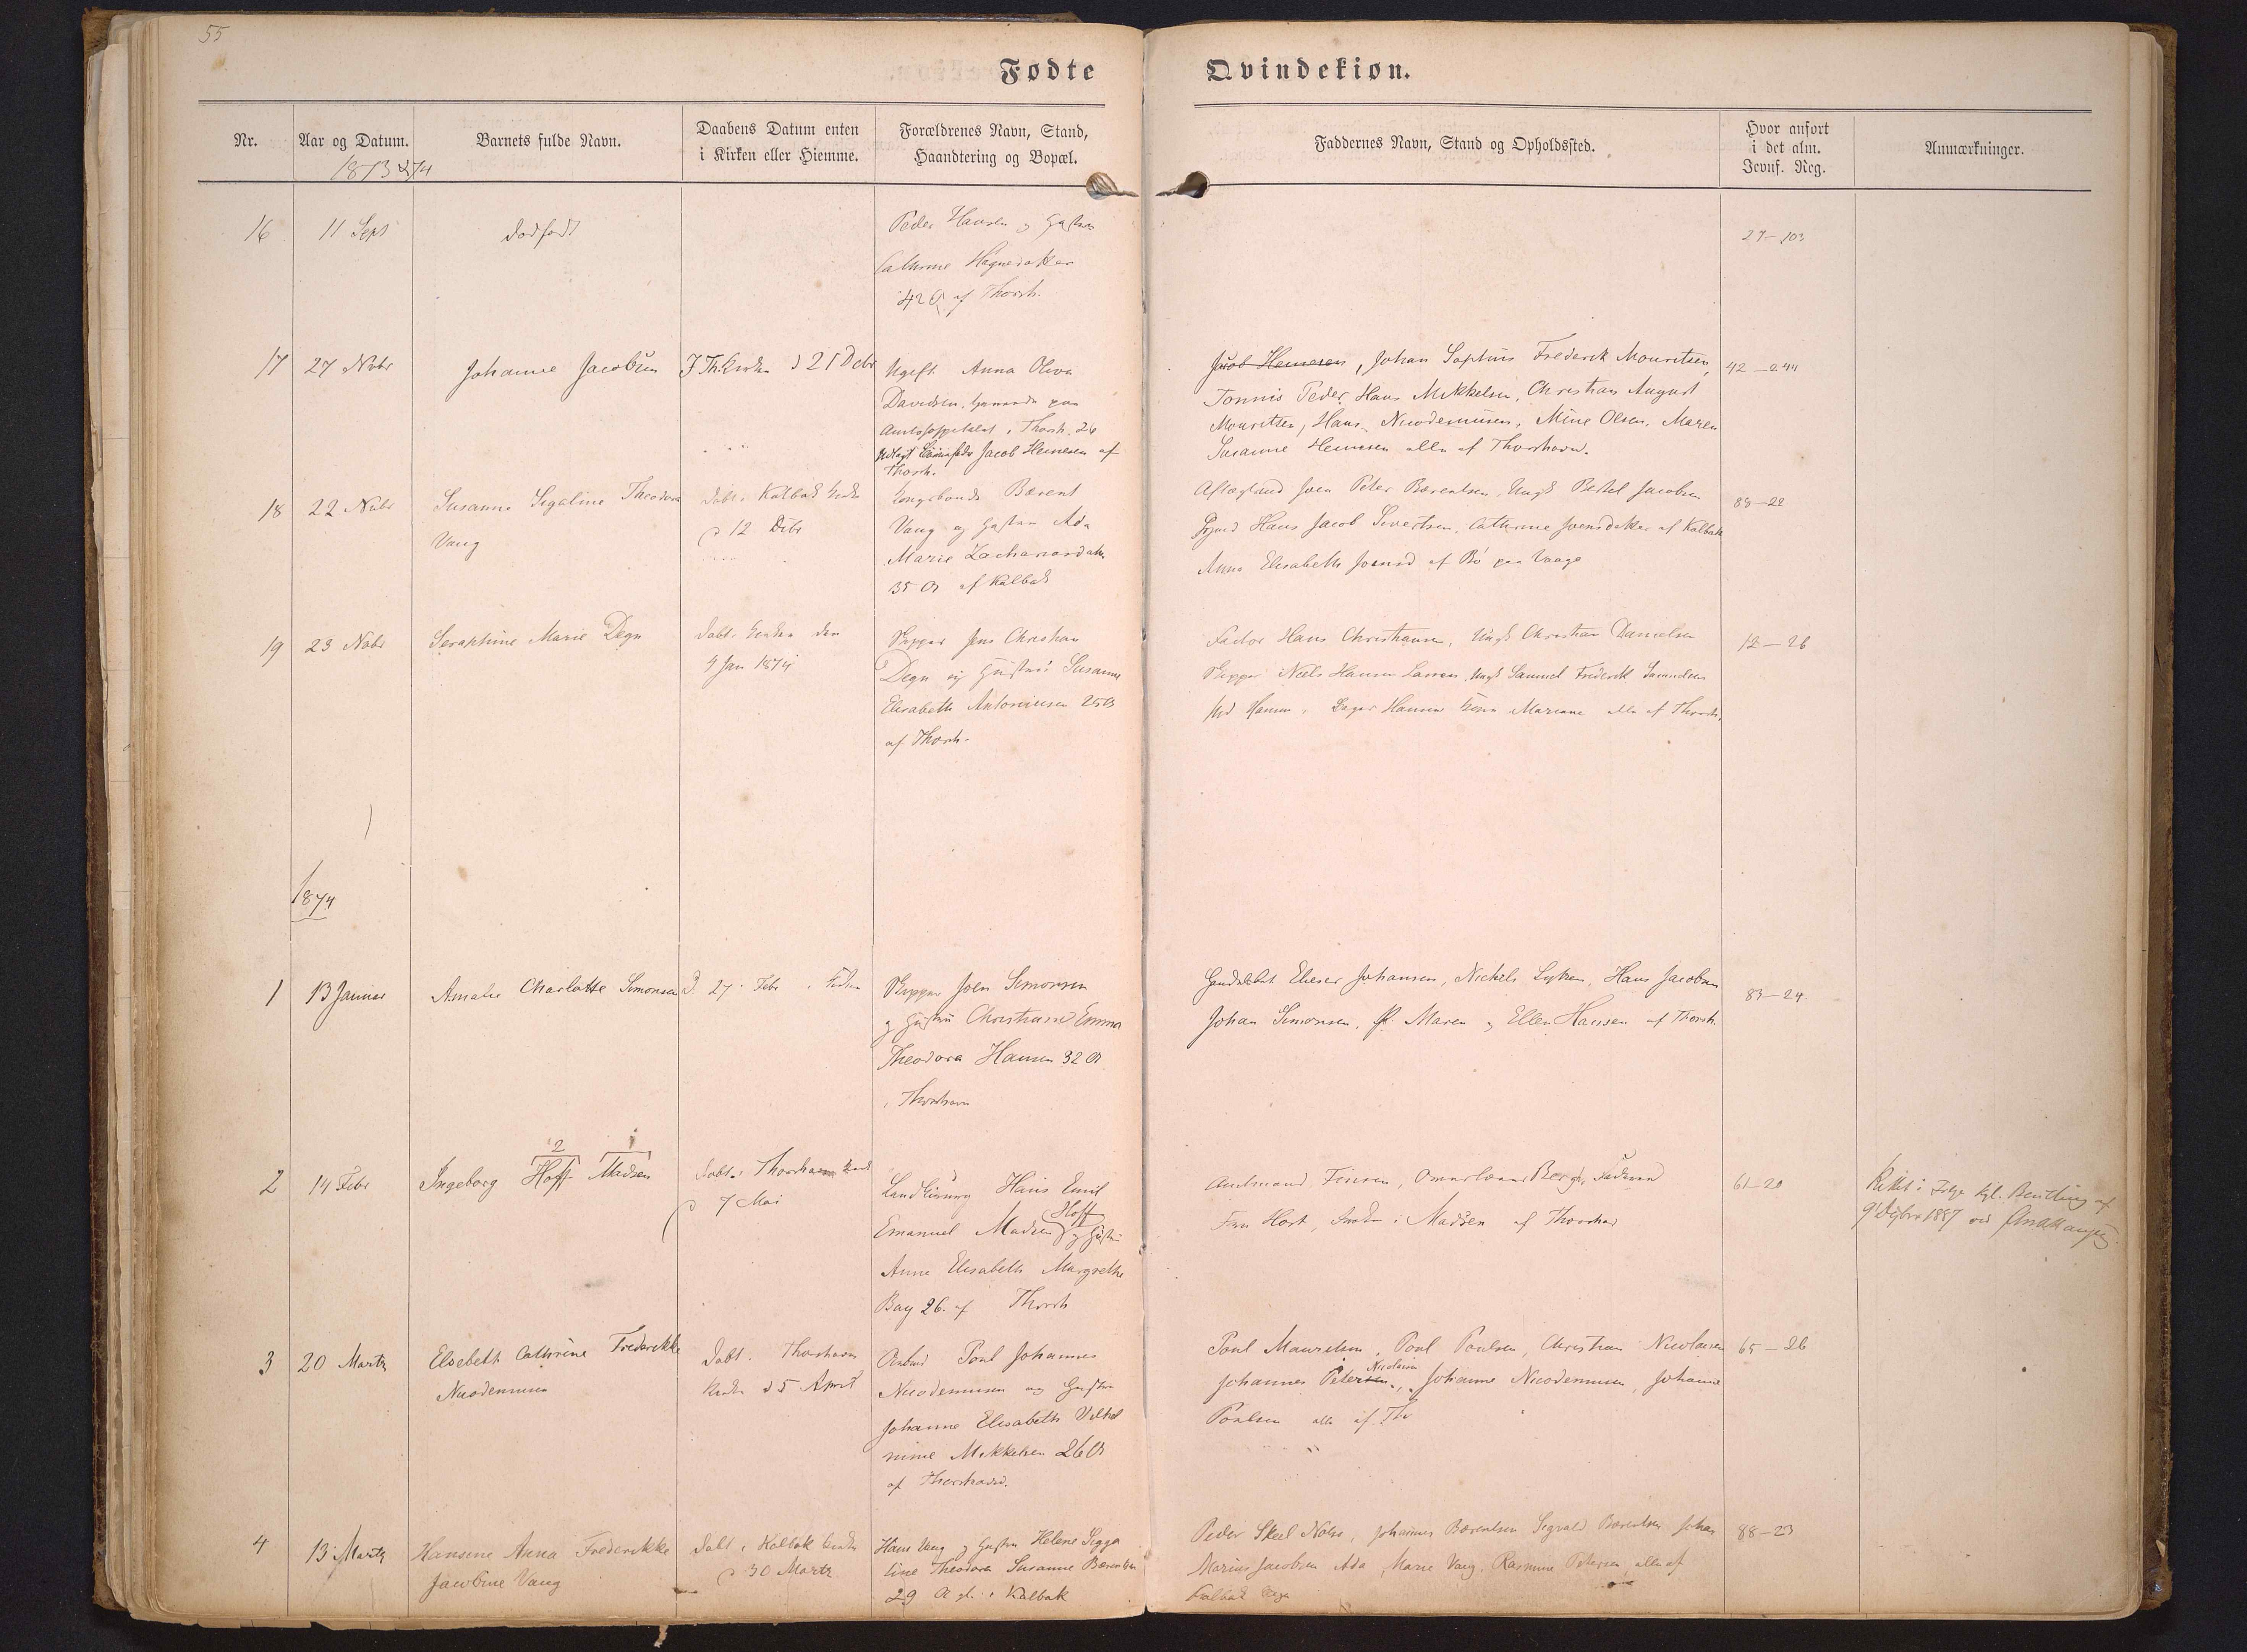 55
Fødte Qvindekiøn.
Nr.
Aar og Datum.
Barnets fulde Navn.
Daabens Datum enten
i Kirken eller Hiemme.
Forældrenes Navn, Stand,
Haandtering og Bopæl.
Faddernes Navn, Stand og Opholdssted.
Hvor anført
i det alm.
Jevnf. Reg.
Anmærkninger.
1873 & 74
16
11 Sept
dødfødt
Peder Hansen og Hustru
Cathrine
42 A af Thorsh.
27-103
17
27 Nvbr
Johanne Jacobsen
I Th. Kirken d 21 Debr
Ugift Anna Oliva
Davidsen,
Amtshospitalet i Thorsh. 26
Udlagt Barnefader Jacob Heinesen af
Thorsh.
Jacob Heinesen, Johan Sophus Frederik Mouritsen,
Tonnis Peder, Hans Mikkelsen, Christian August
Mouritsen, Hans Nicodemusen, Mine Olsen, Maren
Susanne Heinesen alle af Thorshavn.
42-244
18
22 Nvbr
Susanne Sigaline Theodora
Vang
Døbt i Kalbak Kirke
d 12 Debr
Kongsbonde Bærent
Vang og Hustru Ada
Marie Zachariasdatter
35 A af Kalbak
Joen Peter Bærentsen, Ungk Bertel Jacobsen
Hans Jacob Sivertsen, Cathrine Joensdatter af Kalbak
Anna Elisabeth Joensd af Bö paa Vaagø
83-22
19
23 Nvbr
Seraphine Marie Degn
Døbt i Kirken den
4 Jan 1874
Skipper Jens Christian
Degn og Hustru Susanne
Elisabeth Antoniusen 25 A
af Thorsh.
Factor Hans Christiansen, Ungk Christian Danielsen
Skipper Niels Hansen Larsen, Ungk Samuel Frederik Samuelsen
Hansen Kone Mariane alle af Thorsh.
12-26
1874
1
13 Januar
Amalie Charlotte Simonsen
D. 27 Febr i Kirken
Skipper Joen Simonsen
og Hustru Christiane Emma
Theodora Hansen 32 A
i Thorshavn
Elieser Johansen, Nickels Lytzen, Hans Jacobsen
Johan Simonsen, Maren og Ellen Hansen af Thorsh.
83-24
2
14 Febr
2 1
Ingeborg Hoff Madsen
Døbt i Thorshavn Kirke
d 7 Mai
Landkirurg Hans Emil
Hoff
Emanuel Madsen og Hustru
Anne Elisabeth Margrethe
Bay 26. af Thorsh
Amtmand Finsen,
Fru Host, Madsen af Thorshavn
61-20
Rettet i Følge kgl. Bevilling af
9 1887
3
20 Martz
Elsebeth Cathrine Frederikke
Nicodemusen
Døbt i Thorshavn
Kirke d 5 April
Poul Johannes
Nicodemusen og Hustru
Johanne Elisabeth Vilhel
mine Mikkelsen 26 A
af Thorshavn.
Poul Mauritsen, Poul Poulsen, Christian Nicolaisen
Nicolaisen
Johannes Petersen, Johanne Nicodemusen, Johanne
Poulsen alle af Th
65-26
4
13 Martz
Hansine Anna Frederikke
Jacobine Vang
Døbt i Kalbak Kirke
d 30 Martz
Hans Vang og Hustru Helene Sigga
line Theodora Susanne Bærentsen
29 A gl. i Kalbak
Peder Skeel Nolsø, Johannes Bærentsen, Sigvald Bærentsen, Johan
Marius Jacobsen, Ada Marie Vang, Rasmine Petersen, alle af
Kalbak
88-23